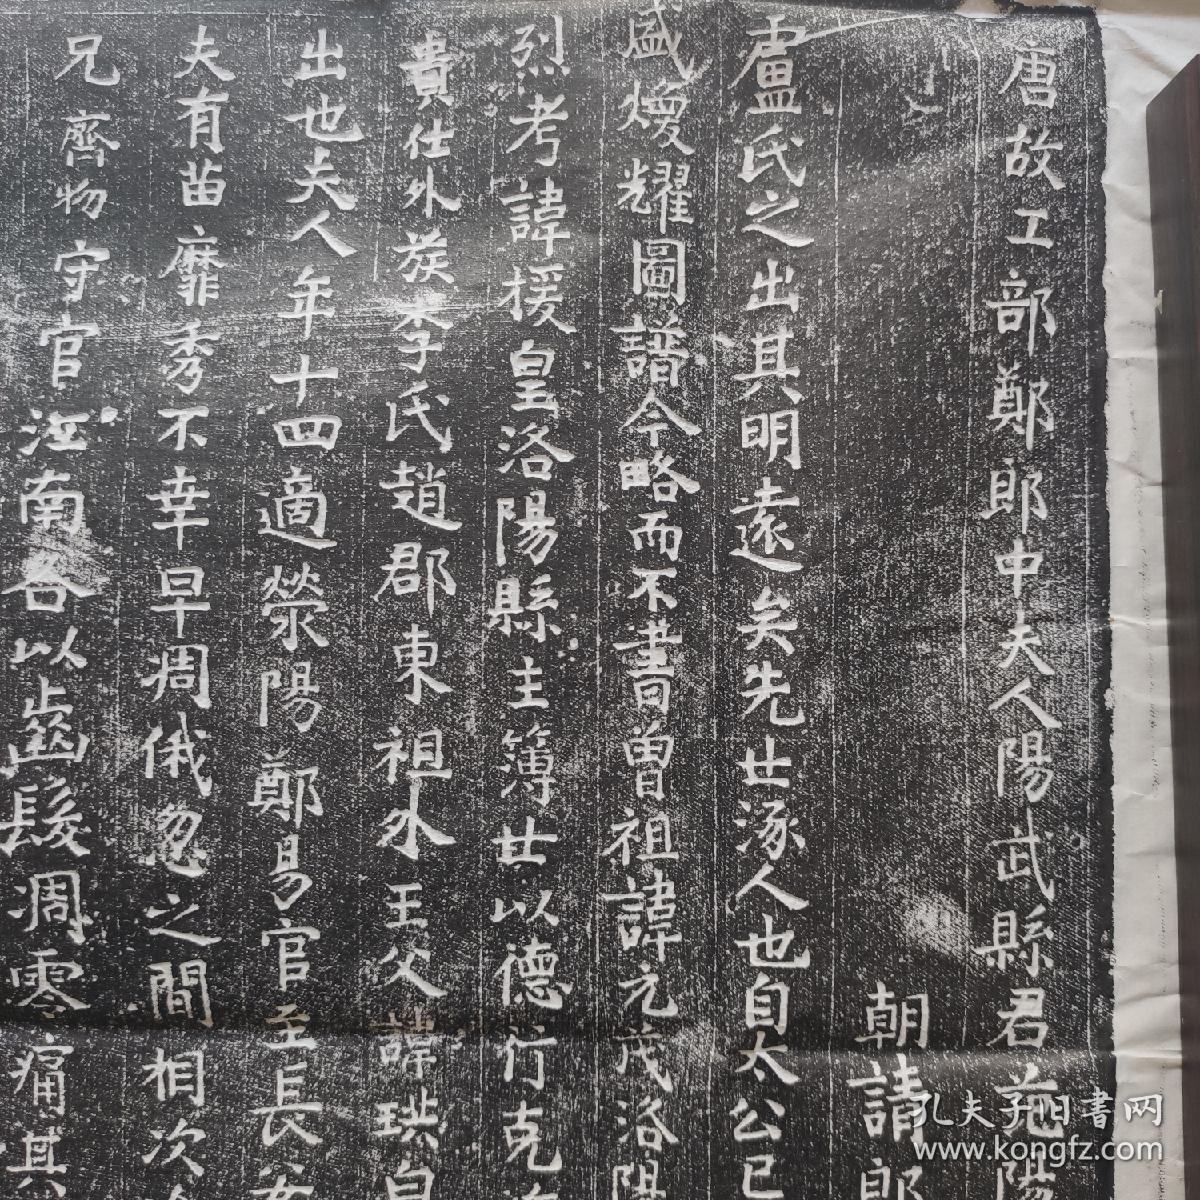 唐故工部鄭郎中夫人陽武縣君范陽
朝請郎
盧氏之出其明遠矣先世涿人也自太公已
盛煥耀圖譜今略而不書曾祖諱元茂洛陽
烈考諱援皇洛陽縣主簿世以德行克
貴仕外族李氏趙郡東祖外王父諱珙自
出也夫人年十四適滎陽鄭易官至長安
夫有苗靡秀不幸早凋俄忽之間相次
兄齊物守官江南各以齒髮凋零痛其
孔夫子旧書网
www.kongfz.com